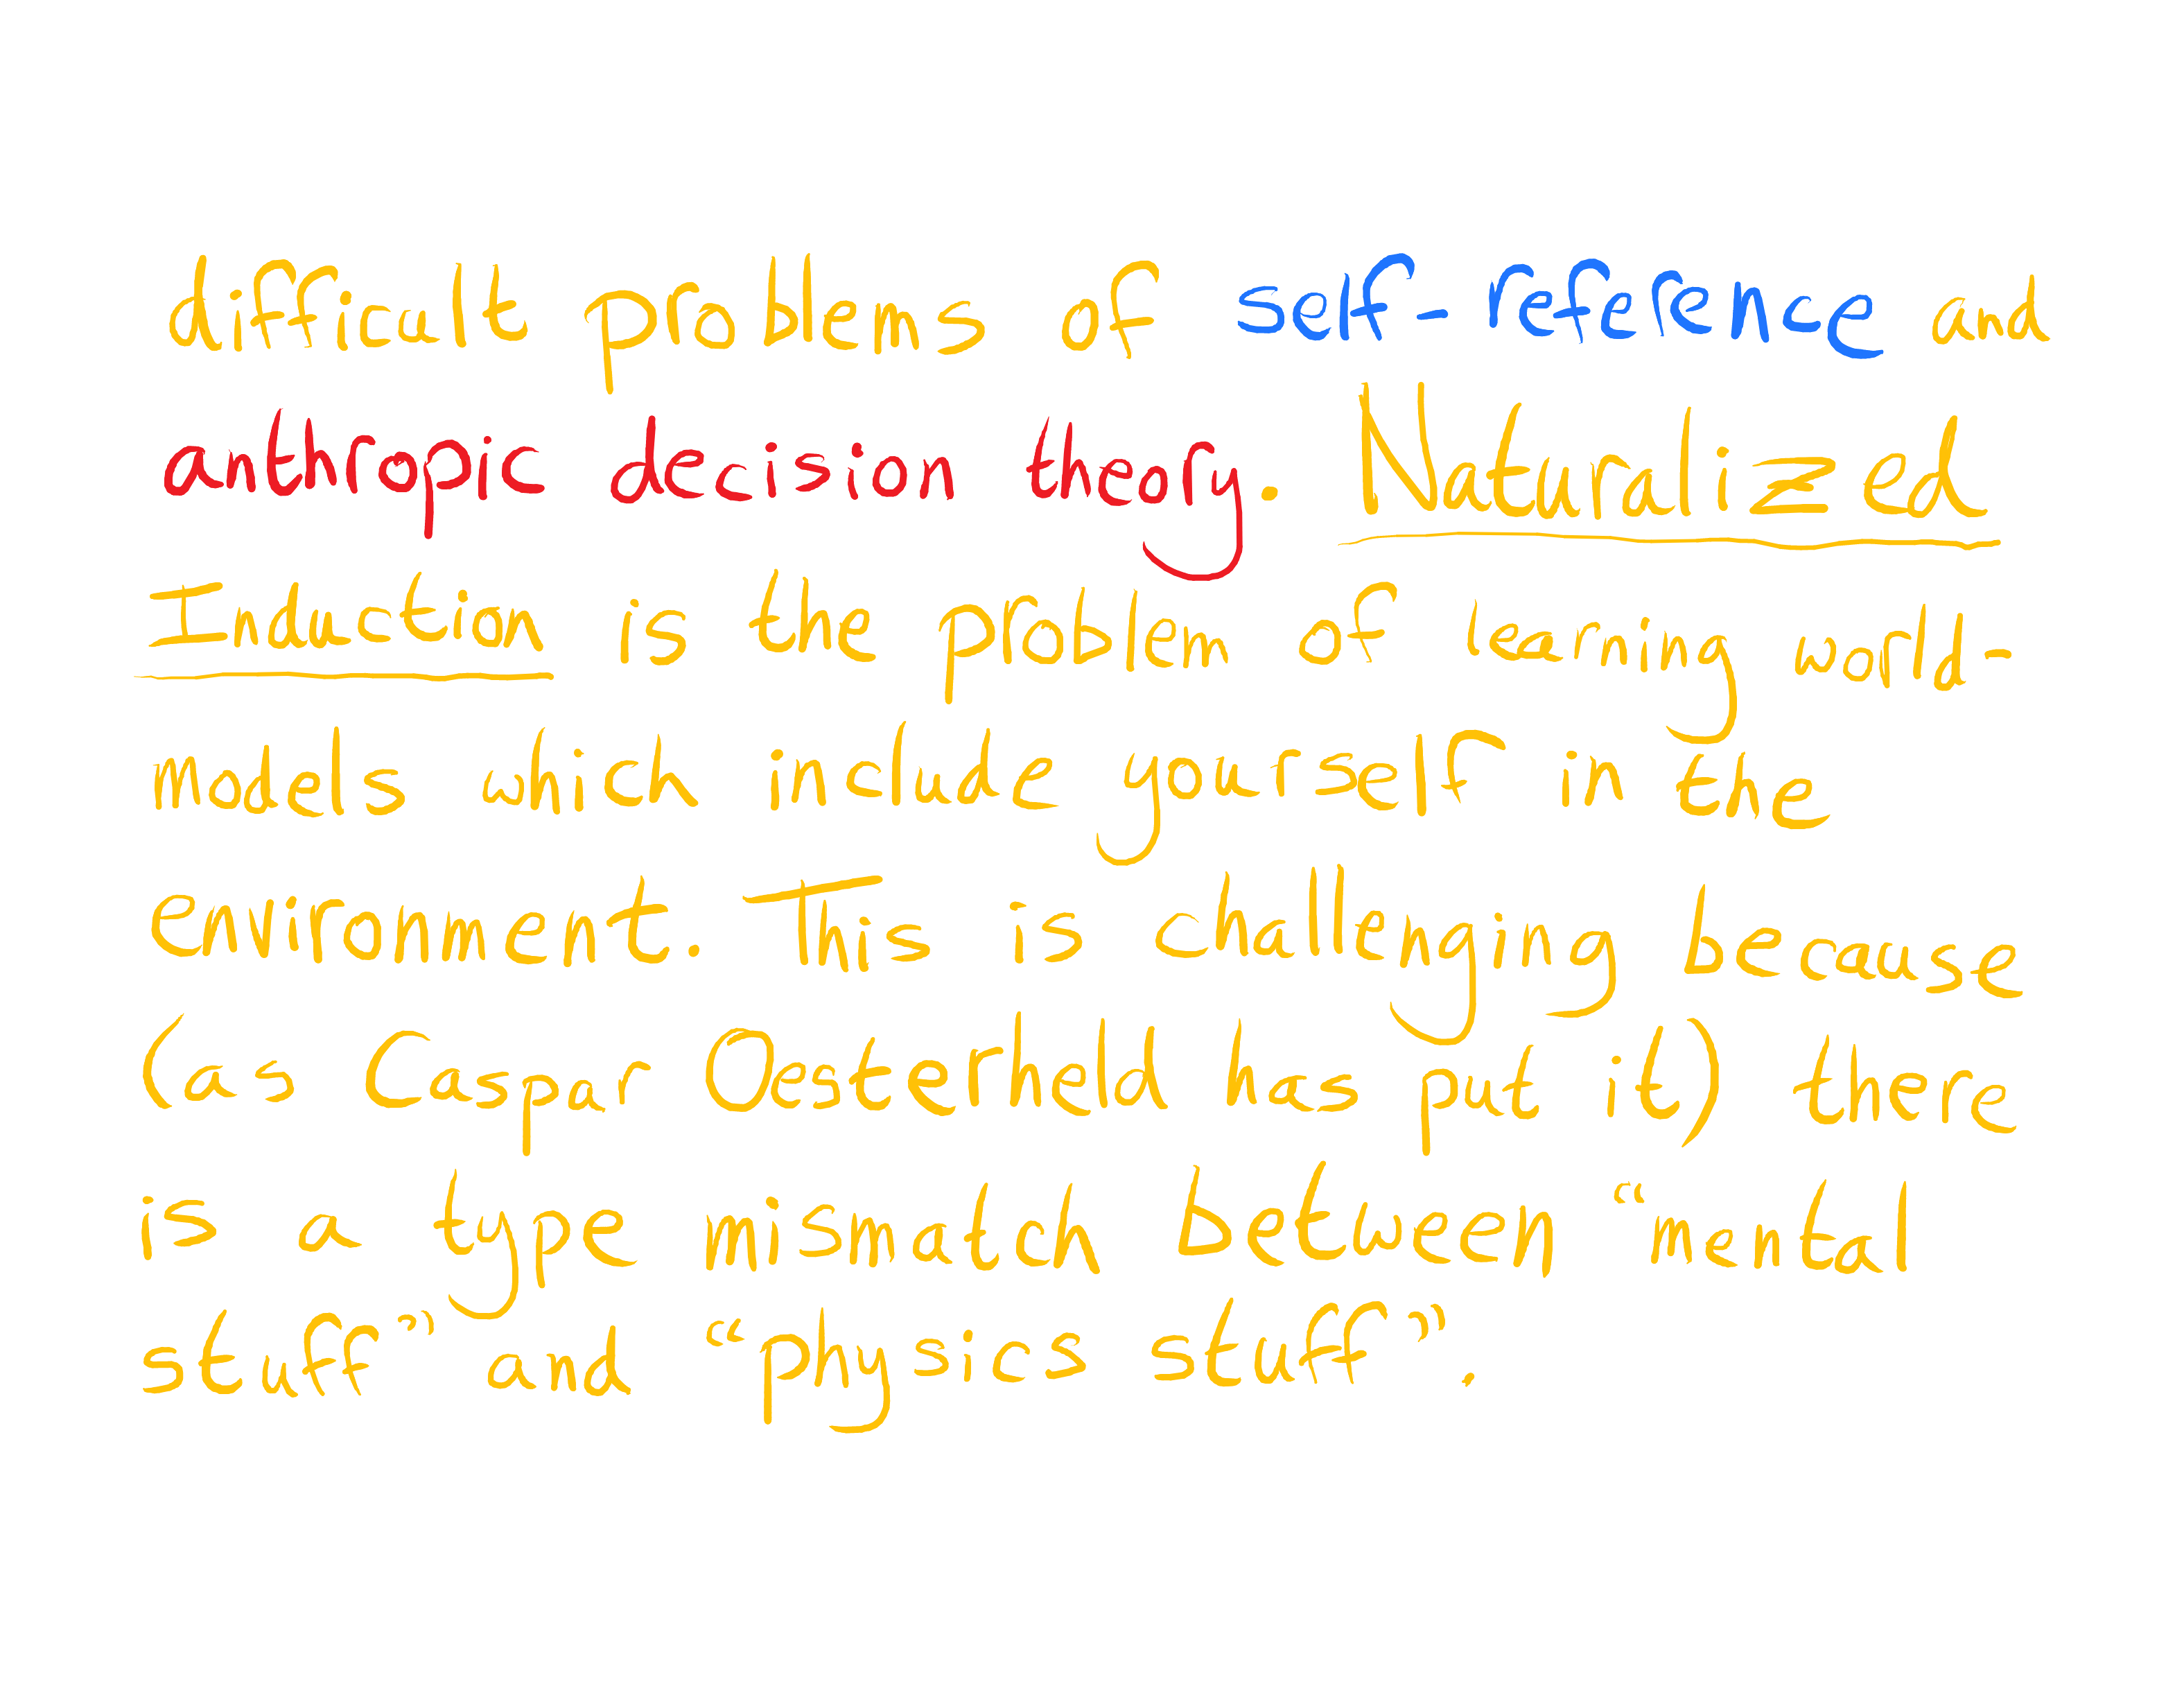 difficult problems of self-reference and
anthropic decision theory. Naturalized
Induction is the problem of learning world-
models which include yourself in the
environment. This is challenging because
(as Caspar Oesterheld has put it) there
is a type mismatch between “mental
stuff” and “physics stuff”.